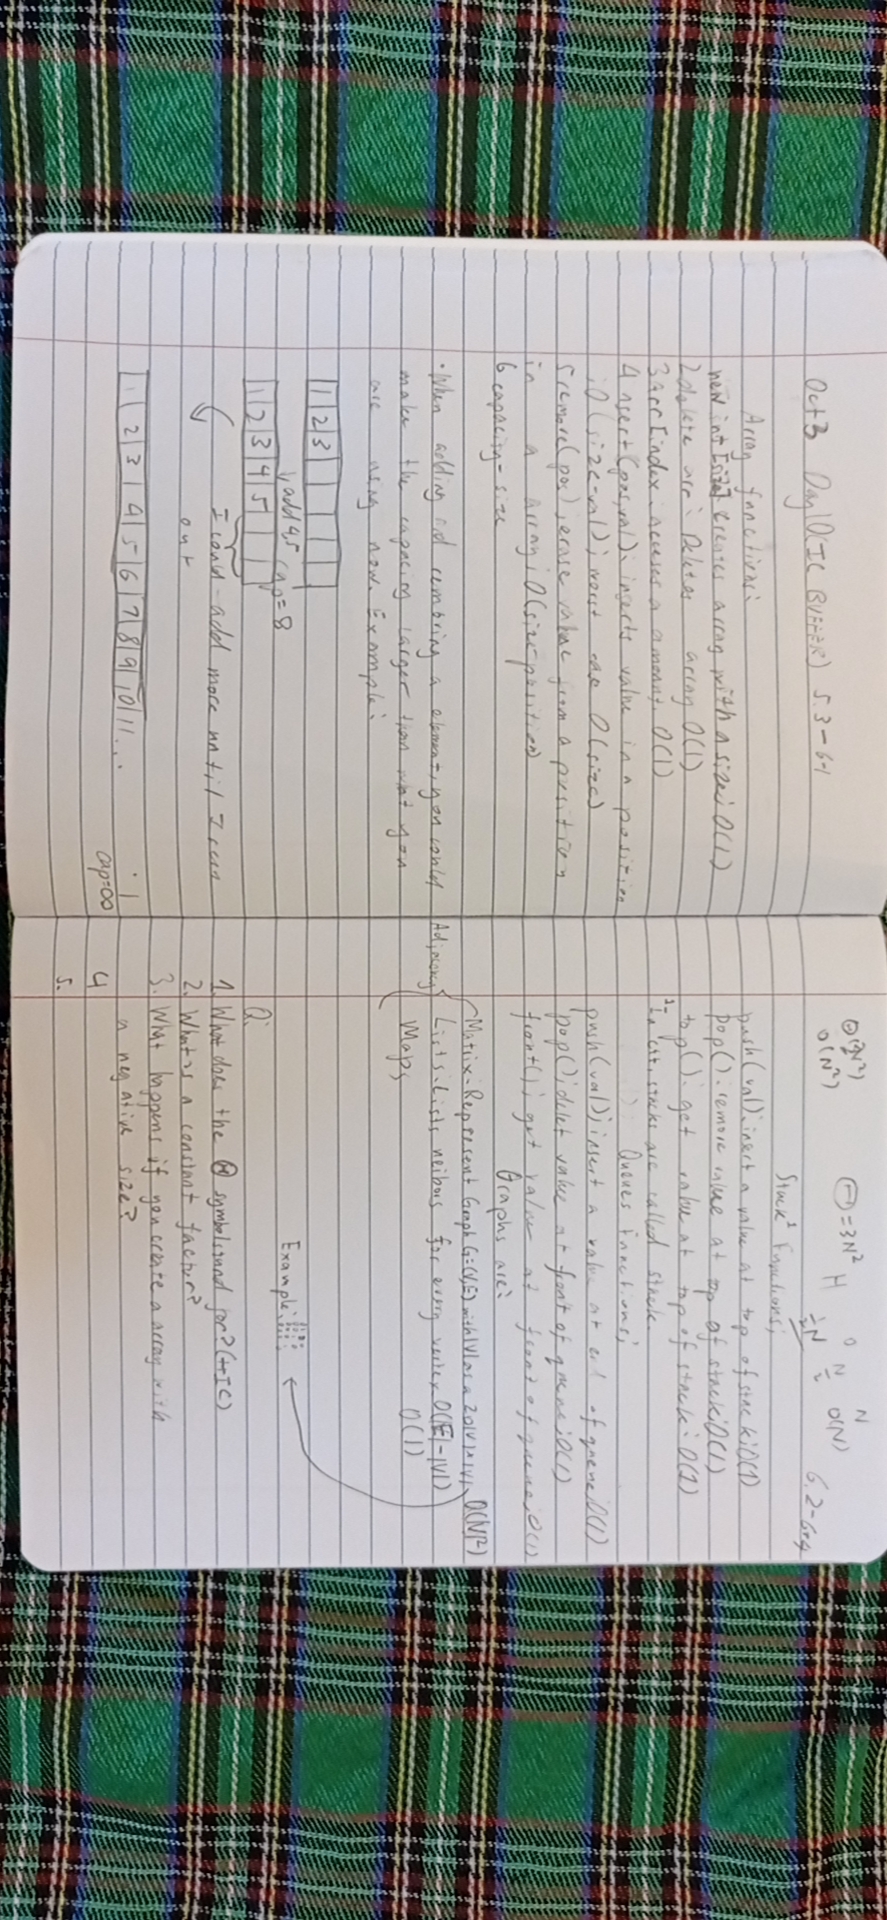 Oct 3 Day 10(IC BUFFER) 5.3-6-1
Array functions:
new int [size]: creates array with a size; O(1)
2 delete arr: Deletes array O(1)
3 arr[index: access a amount. O(1)
4 Insert(pos,val): inserts value in a position
; O(size-val); worst case O(size)
5 remove(pos); erase value from a position
in a array; O(size-position)
6 capacity-size
• When adding and a element, you could
make the capacity larger than what you
are using now. Example:
1 2 3
add 4,5 cap=8
1 2 3 4 5
I could add more until I run
out
1 2 3 4 5 6 7 8 9 10 11 ...
cap=∞
Θ(3N²) Θ=3N² H 0 N
O(N²) ½N O(N) 6.2-6+4
Stack¹ Functions;
push(val): insert a value at top of stack; O(1)
pop(): remove value at top of stack; O(1)
top(): get value at top of stack; O(1)
stacks are called stack.
Queues Functions;
push(val); insert a value at end of queue; O(1)
pop(); delet value at front of queue; O(1)
front(); get value at front of queue; O(1)
Graphs are:
Adjacency
Matrix: Represent Graph G=(V,E) with |V| as a 2D |V|×|V|, O(|V|²)
Lists: Lists neibors for every vertex O(|E|-|V|)
Maps O(1)
Example:
Q:
1. What does the Θ symbol stand for? (+IC)
2. What is a constant factor?
3. What happens if you create a array with
a negative size?
4
5.